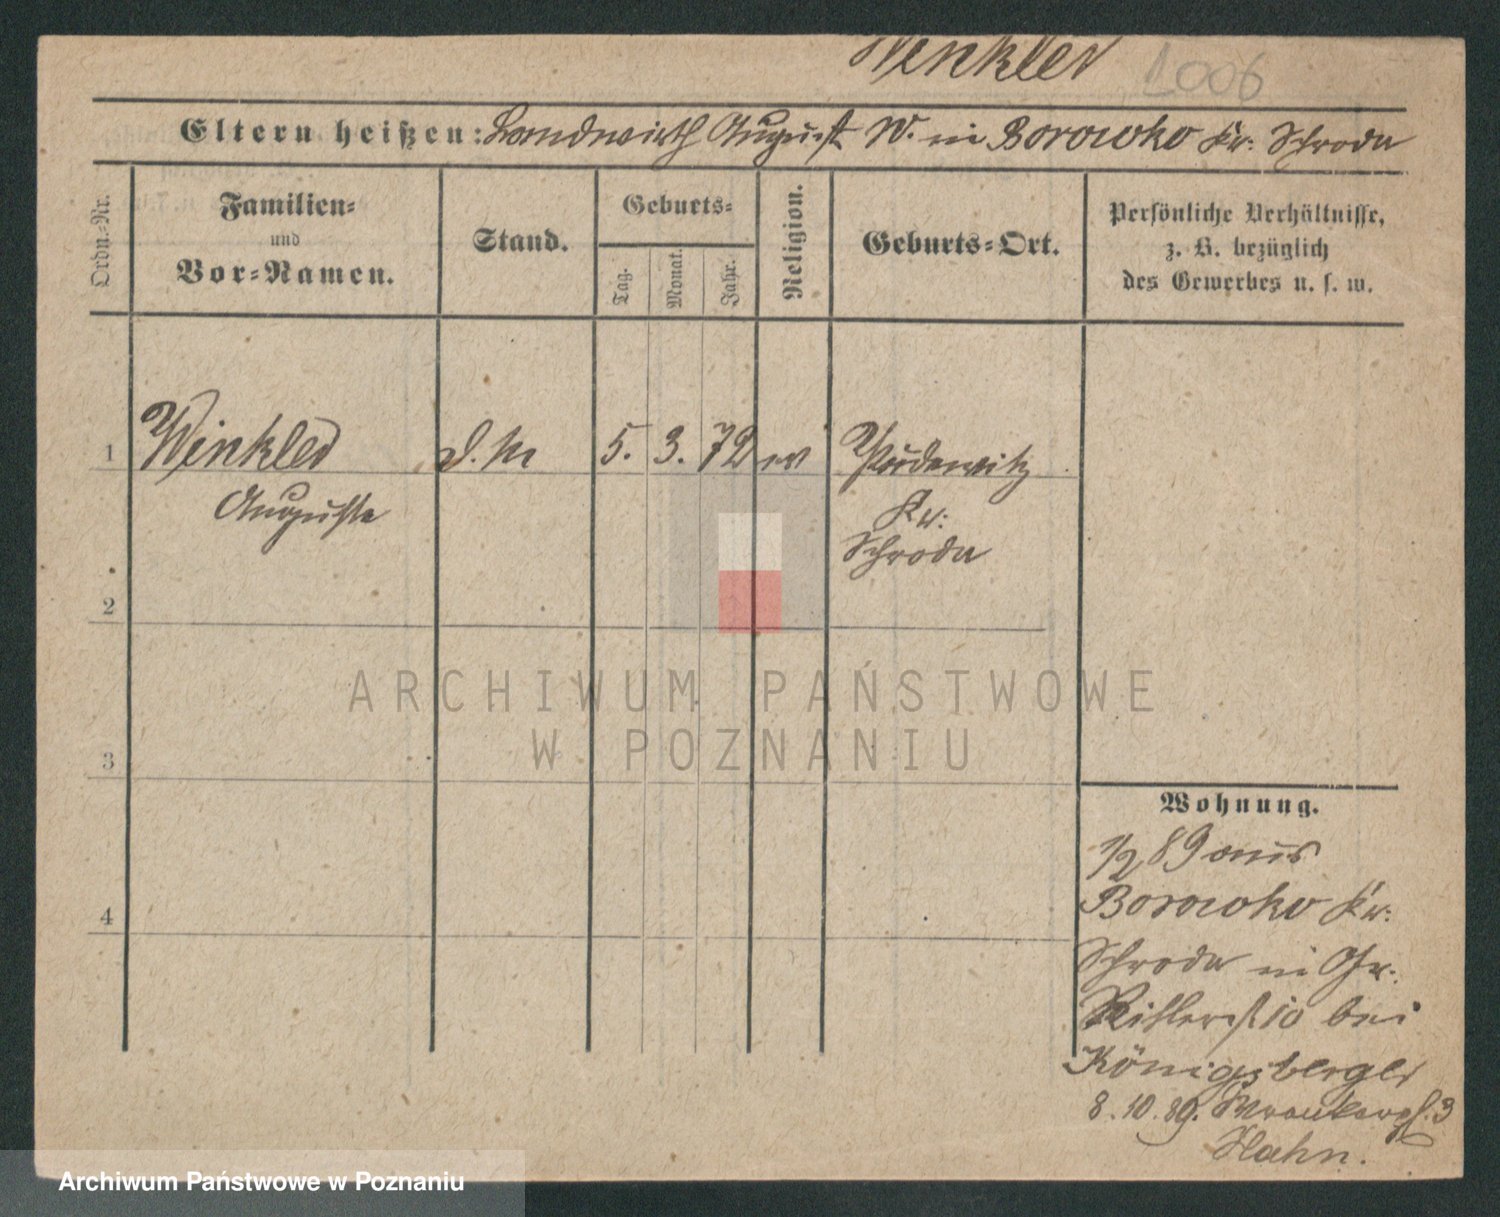 Winkler 1006
Eltern heißen: Landwirth August W. in Borowko Kr. Schroda
Ordn.-Nr.
Familien-
und
Vor-Namen.
Stand.
Geburts-
Tag.
Monat.
Jahr.
Religion.
Geburts-Ort.
Persönliche Verhältnisse,
z. B. bezüglich
des Gewerbes u. s. w.
1 Winkler d. M 5. 3. 72 ev Pudewitz
Auguste Kr:
Schroda
2
3
4
ARCHIWUM PAŃSTWOWE
W POZNANIU
Wohnung.
1/2 89 aus
Borowko Kr:
Schroda in Gr.
Ritterst 10 bei
Königsberger
8.10.89. 3
Hahn.
Archiwum Państwowe w Poznaniu